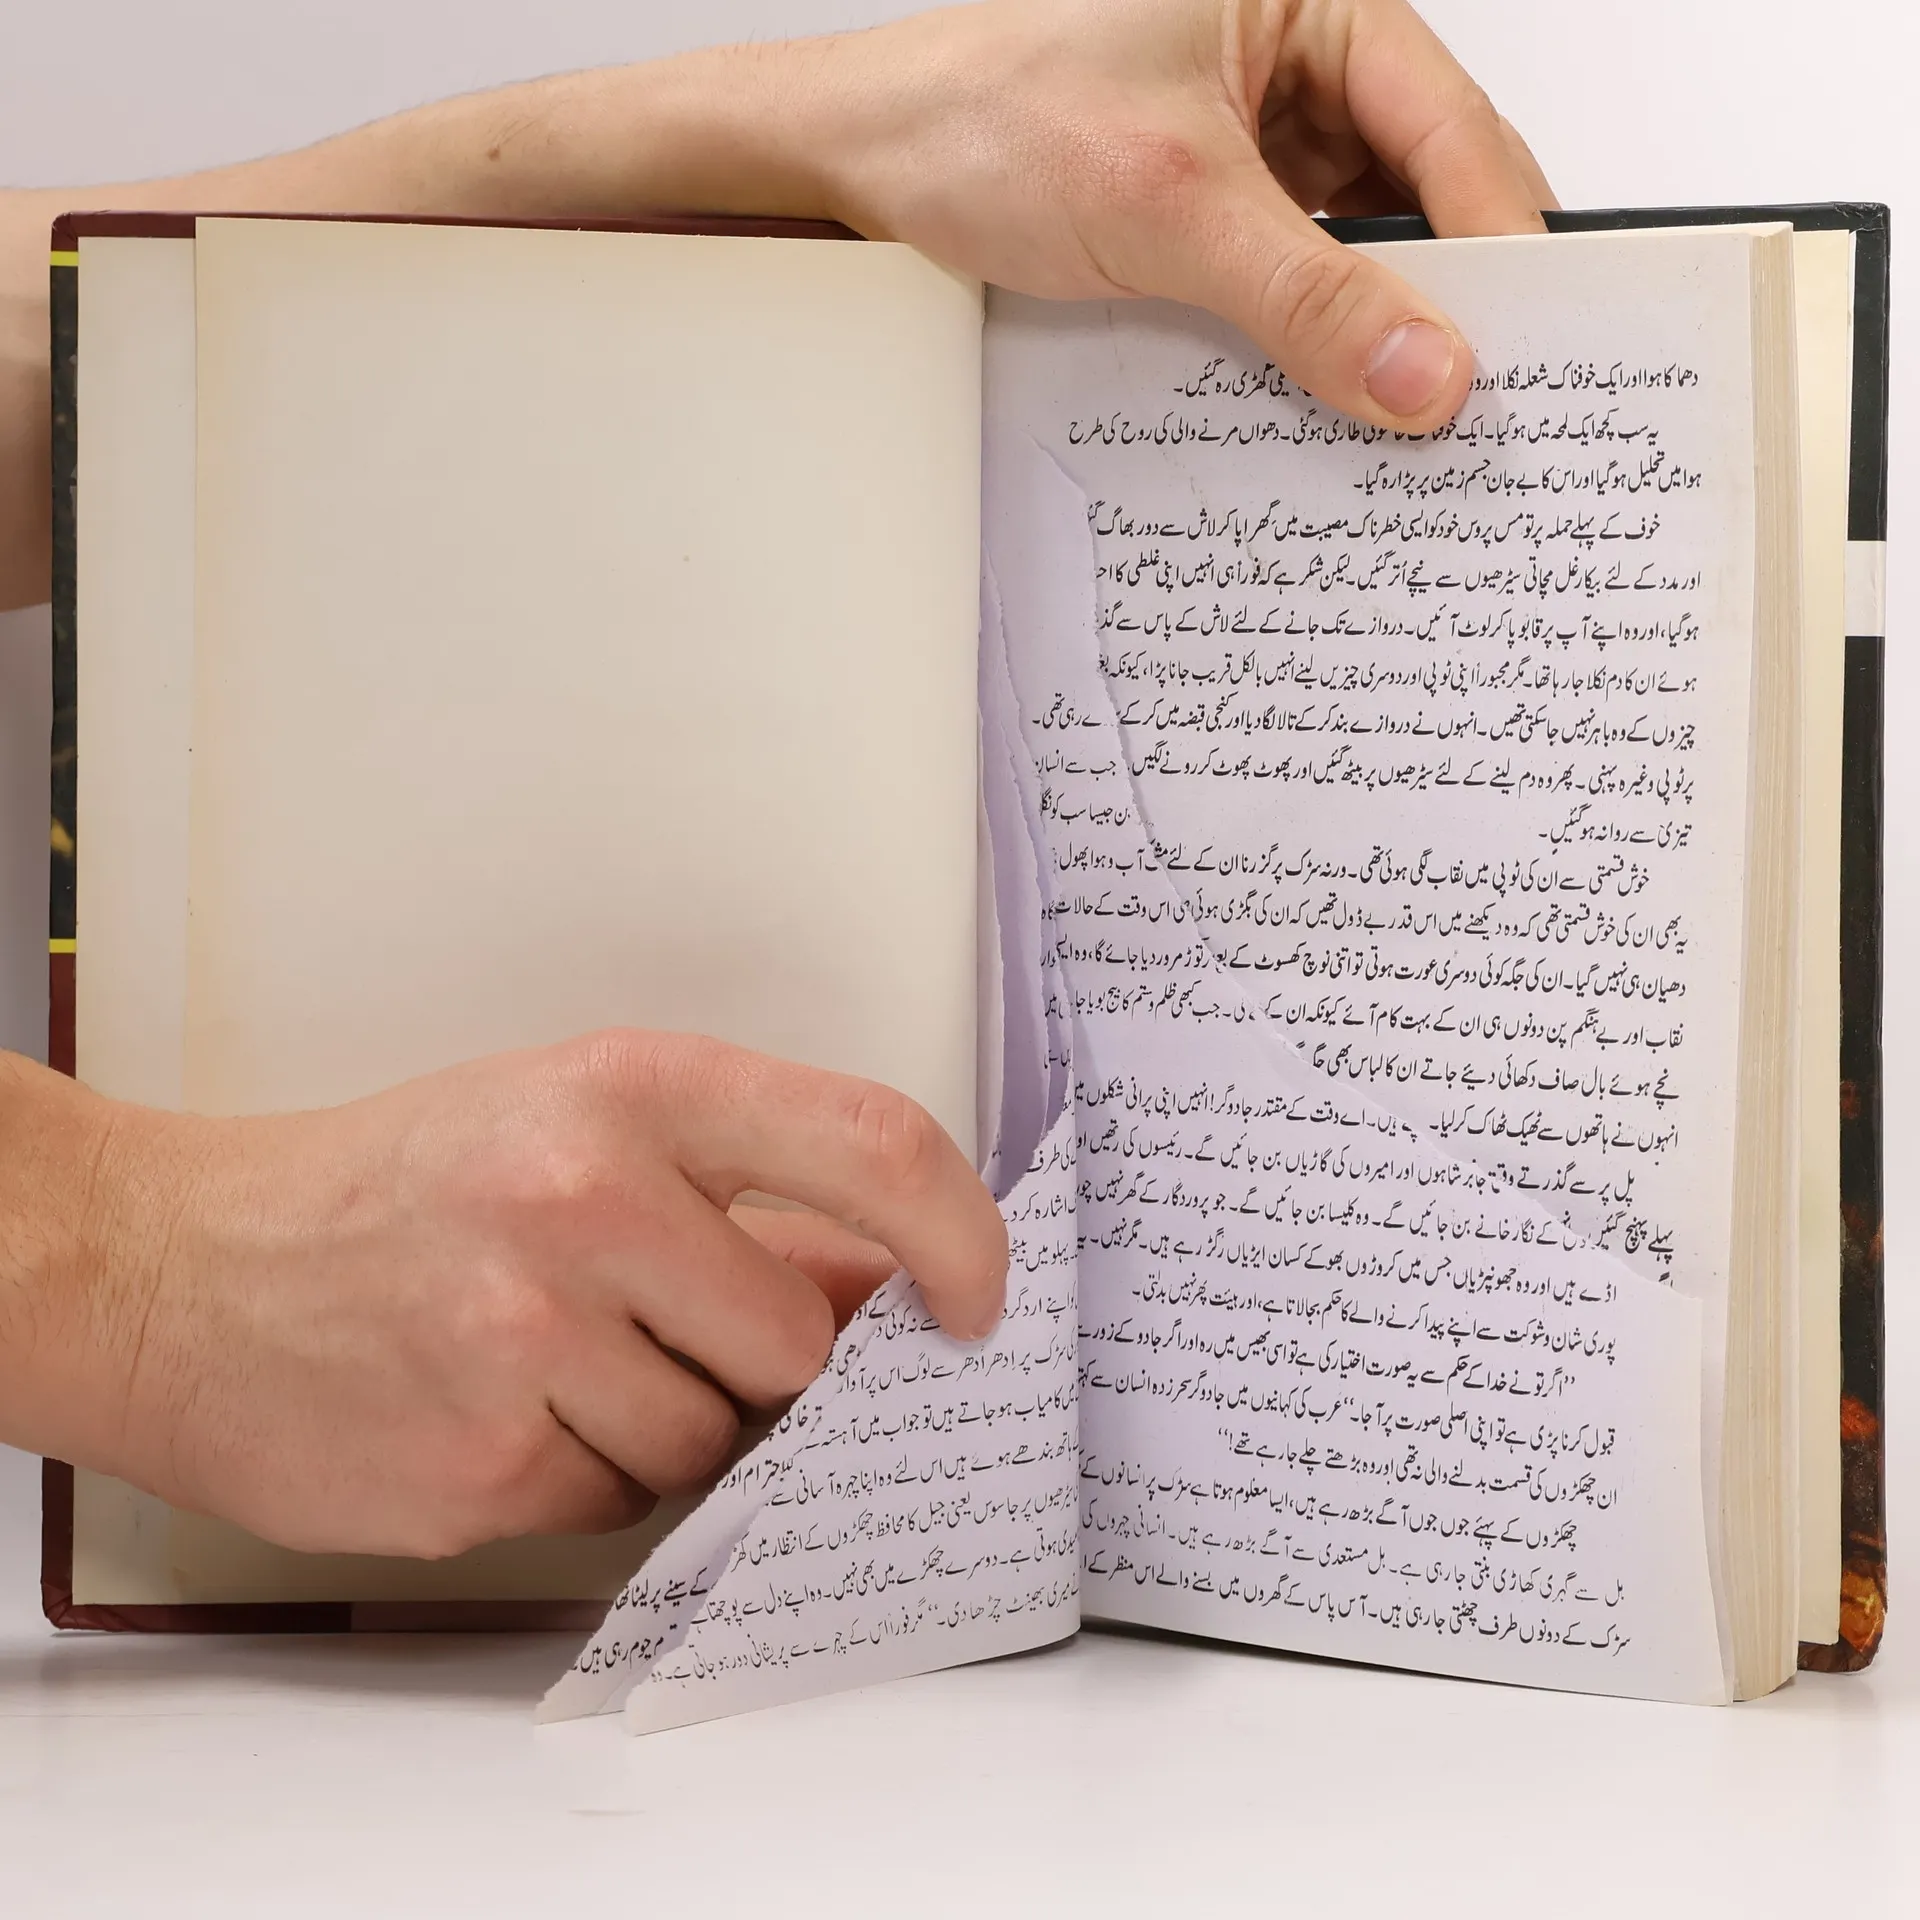 دھماکا ہوا اور ایک خوفناک شعلہ نکلا اور کھڑی رہ گئیں۔
یہ سب کچھ ایک لمحہ میں ہو گیا۔ ایک طاری ہو گئی۔ دھواں مرنے والی کی روح کی طرح
ہوا میں تحلیل ہو گیا اور اس کا بے جان جسم زمین پر پڑا رہ گیا۔
خوف کے پہلے حملہ پر تو مس پروس خود کو ایسی خطرناک مصیبت میں گھرا پا کر لاش سے دور بھاگ
اور مدد کے لئے بیکار غل مچاتی سیڑھیوں سے نیچے اُتر گئیں۔ لیکن شکر ہے کہ فوراً ہی انہیں اپنی غلطی کا
ہو گیا، اور وہ اپنے آپ پر قابو پا کر لوٹ آئیں۔ دروازے تک جانے کے لئے لاش کے پاس سے
ہوئے ان کا دم نکلا جا رہا تھا۔ مگر مجبوراً اپنی ٹوپی اور دوسری چیزیں لینے انہیں بالکل قریب جانا پڑا، کیونکہ
چیزوں کے وہ باہر نہیں جا سکتی تھیں۔ انہوں نے دروازے بند کر کے تالا لگا دیا اور کنجی قبضہ میں کر کے رہی تھی۔
پر ٹوپی وغیرہ پہنی۔ پھر وہ دم لینے کے لئے سیڑھیوں پر بیٹھ گئیں اور پھوٹ پھوٹ کر رونے لگیں جب سے انسان
بن جیسا سب کو
تیزی سے روانہ ہو گئیں۔
خوش قسمتی سے ان کی ٹوپی میں نقاب لگی ہوئی تھی۔ ورنہ سڑک پر گزرنا ان کے لئے آب و ہوا پھول
یہ بھی ان کی خوش قسمتی تھی کہ وہ دیکھنے میں اس قدر بے ڈول تھیں کہ ان کی بگڑی ہوئی اس وقت کے حالات
دھیان ہی نہیں گیا۔ ان کی جگہ کوئی دوسری عورت ہوتی تو اتنی نوچ کھسوٹ کے توڑ مروڑ دیا جائے گا، وہ
نقاب اور بے ہنگم پن دونوں ہی ان کے بہت کام آئے کیونکہ ان جب کبھی ظلم و ستم کا بیج بویا
نچے ہوئے بال صاف دکھائی دیئے جاتے ان کا لباس بھی
انہوں نے ہاتھوں سے ٹھیک ٹھاک کر لیا۔ ہیں۔ اے وقت کے مقتدر جادوگر! انہیں اپنی پرانی شکلوں میں
پل پر سے گذرتے جابر شاہوں اور امیروں کی گاڑیاں بن جائیں گے۔ رئیسوں کی رتھیں
پہلے پہنچ گئیں کے نگار خانے بن جائیں گے۔ وہ کلیسا بن جائیں گے۔ جو پروردگار کے گھر نہیں
اڈے ہیں اور وہ جھونپڑیاں جس میں کروڑوں بھوکے کسان ایڑیاں رگڑ رہے ہیں۔ مگر نہیں۔
پوری شان و شوکت سے اپنے پیدا کرنے والے کا حکم بجا لاتا ہے، اور ہیئت پھر نہیں بدلتی۔
”اگر تو نے خدا کے حکم سے یہ صورت اختیار کی ہے تو اسی بھیس میں رہ اور اگر جادو کے زور
قبول کرنا پڑی ہے تو اپنی اصلی صورت پر آ جا۔“ عرب کی کہانیوں میں جادوگر سحر زدہ انسان سے
ان چھکڑوں کی قسمت بدلنے والی نہ تھی اور وہ بڑھتے چلے جا رہے تھے!“
چھکڑوں کے پہئے جوں جوں آگے بڑھ رہے ہیں، ایسا معلوم ہوتا ہے سڑک پر انسانوں کے
بل سے گہری کھاڑی بنتی جا رہی ہے۔ بل مستعدی سے آگے بڑھ رہے ہیں۔ انسانی چہروں کی
سڑک کے دونوں طرف چھٹتی جا رہی ہیں۔ آس پاس کے گھروں میں بسنے والے اس منظر کے
کی طرف
اشارہ کر
پہلو میں
اپنے ارد گرد
سڑک پر اِدھر اُدھر سے لوگ اس پر آ
میں کامیاب ہو جاتے ہیں تو جواب میں آہستہ
ہاتھ بندھے ہوئے ہیں اس لئے وہ اپنا چہرہ آسانی سے
سیڑھیوں پر جاسوس یعنی جیل کا محافظ چھکڑوں کے انتظار میں
ہوتی ہے۔ دوسرے چھکڑے میں بھی نہیں۔ وہ اپنے دل سے پوچھتا
میری بھینٹ چڑھا دی۔“ مگر فوراً اس کے چہرے سے پریشانی دور ہو جاتی ہے۔ وہ
احترام اور
کے سینے پر لیٹا تھا
چوم رہی ہیں۔